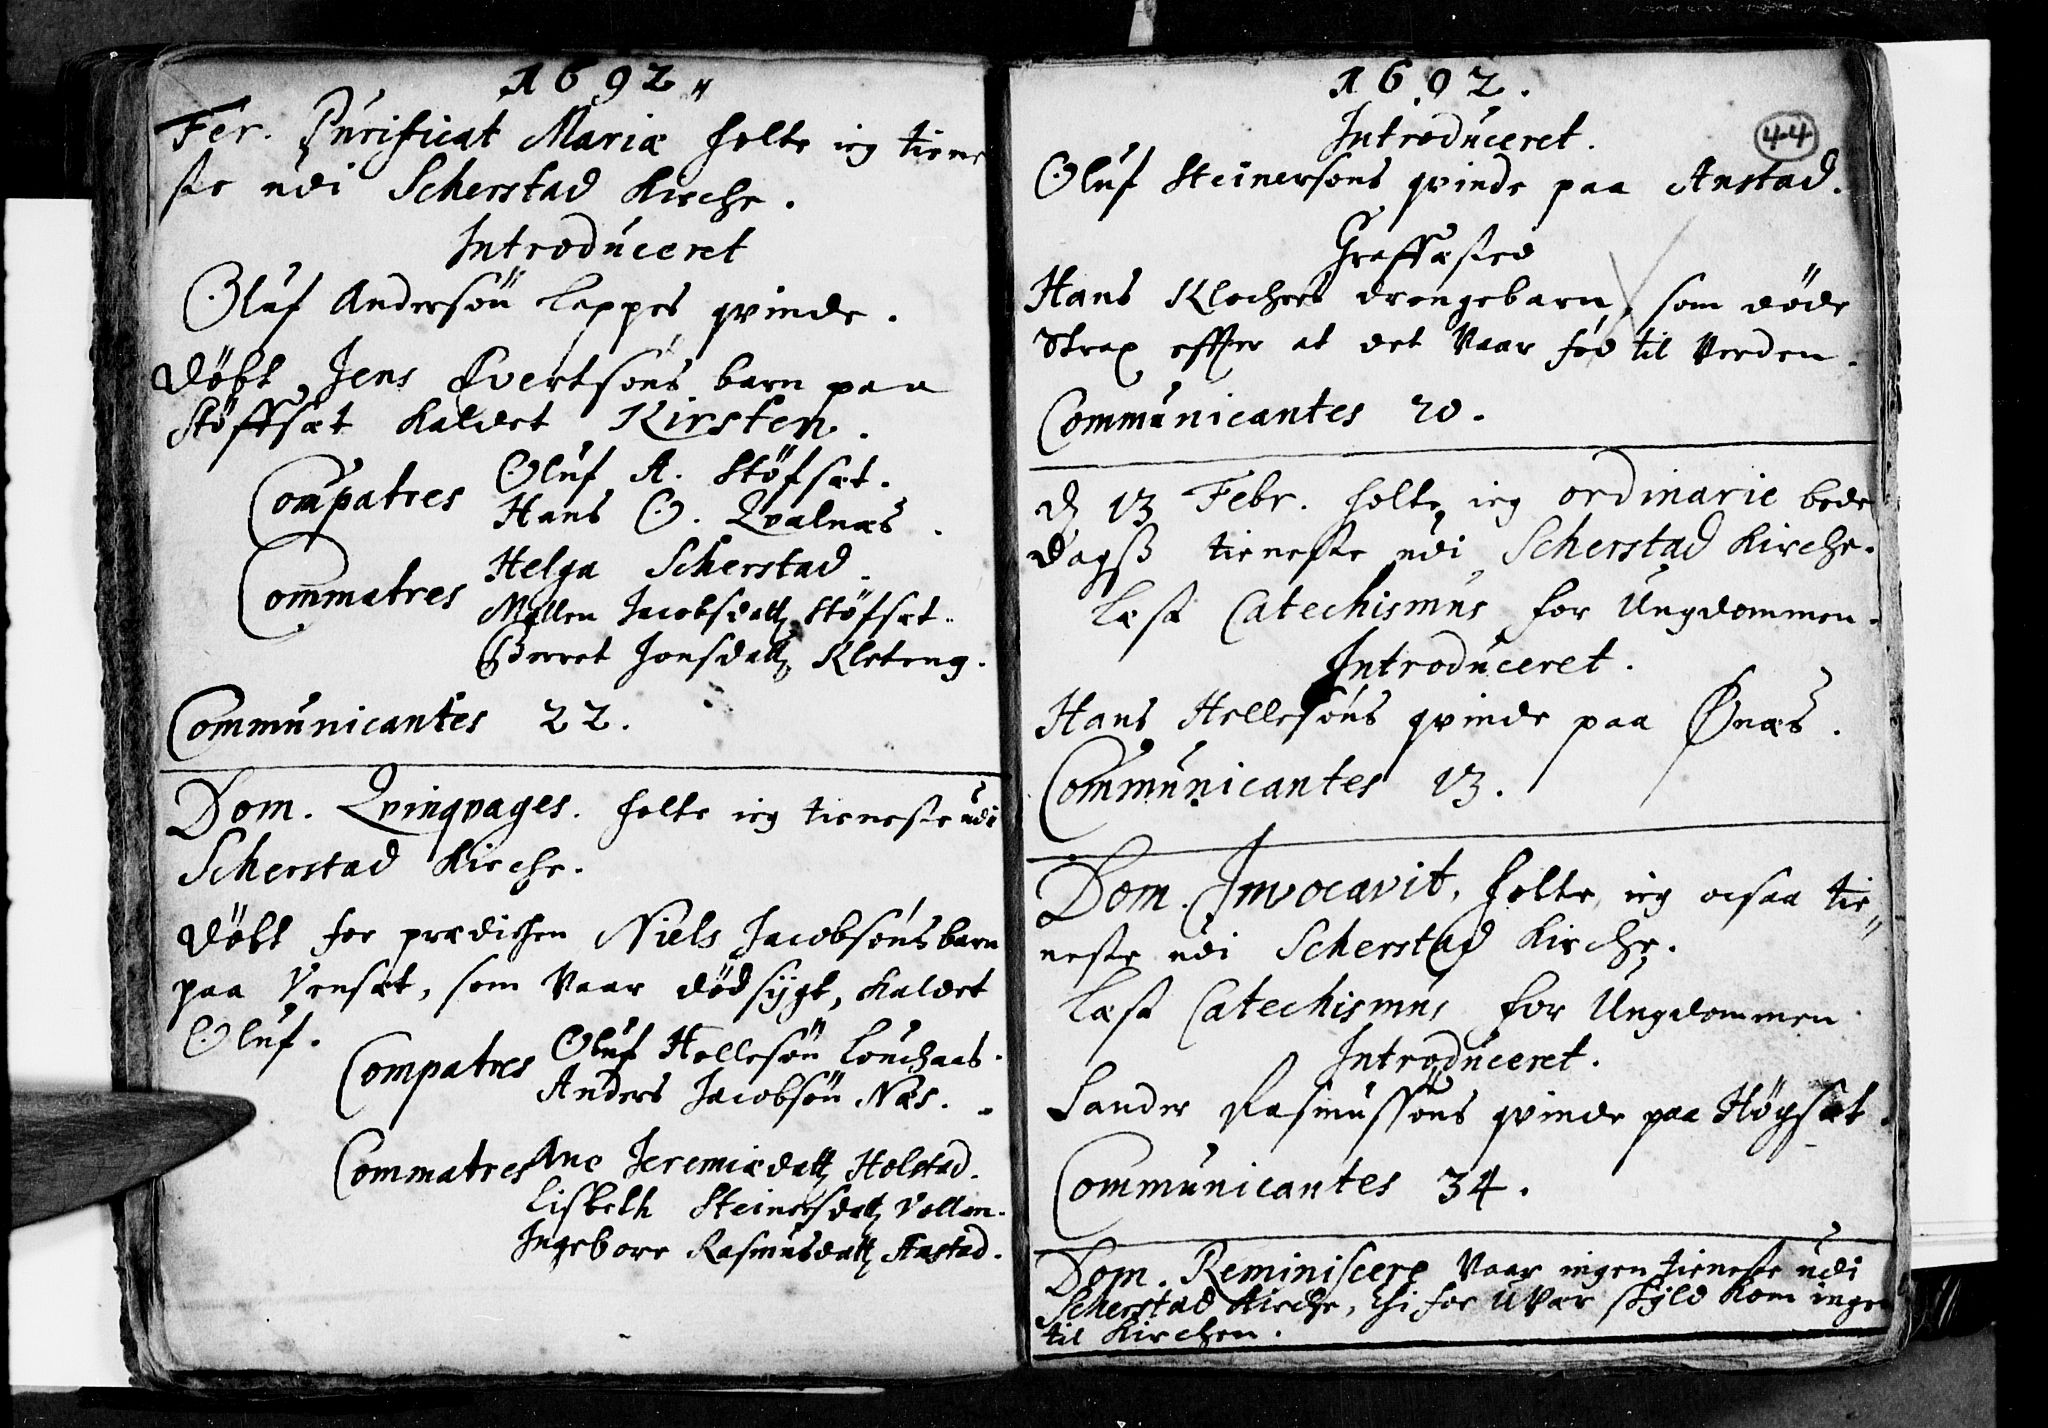 1692 „
Fer. Purificat Mariæ holte ieg tiene
ste udi Scherstad Kirche.
Introduceret
Oluf Andersøn Leppes qvinde.
Døbt Jens Evertsøns barn paa
Støffsæt kaldet Kirsten.
Compatres Oluf A. Støfsæt.
Hans O. Qvalnæs.
Commatres Helga Scherstad.
Mallen Jacobsdatt Støfsæt.
Berret Jonsdatt Kleteng.
Communicantes 22.
Dom. Qvinqvages. holte ieg tieneste udi
Scherstad Kirche.
Døbt for prædichen Niels Jacobsøns barn
paa Vensæt, som vaar dødsygt, kaldet
Oluf.
Compatres Oluf Hellesøn Leuchaas.
Anders Jacobsøn Næs.
Commatres Ane Jeremiædatt Holstad.
Lisbeth Steinersdatt Vollan.
Ingeborr Rasmusdatt Anstad.
1692.
44
Introduceret.
Oluf Steinersøns qvinde paa Anstad.
Graffæsted
Hans Klochers drengebarn, som døde
Strax effter at det vaar fød til verden.
Communicantes 20.
d 13 Febr. holte ieg ordinarie bede
dagsß tieneste udi Scherstad Kirche.
Læst Catechismus for Ungdommen.
Introduceret.
Hans Hellesøns qvinde paa Ønæs.
Communicantes 13.
Dom. Invocavit, holte ieg ocsaa tie„
neste udi Scherstad Kirche.
Læst Catechismus for Ungdommen
Introduceret.
Sander Rasmussøns qvinde paa Høgsæt.
Communicantes 34.
Dom. Reminiscere vaar ingen tieneste udi
Scherstad Kirche, thi for uvær skyld kom ingen
til Kirchen.